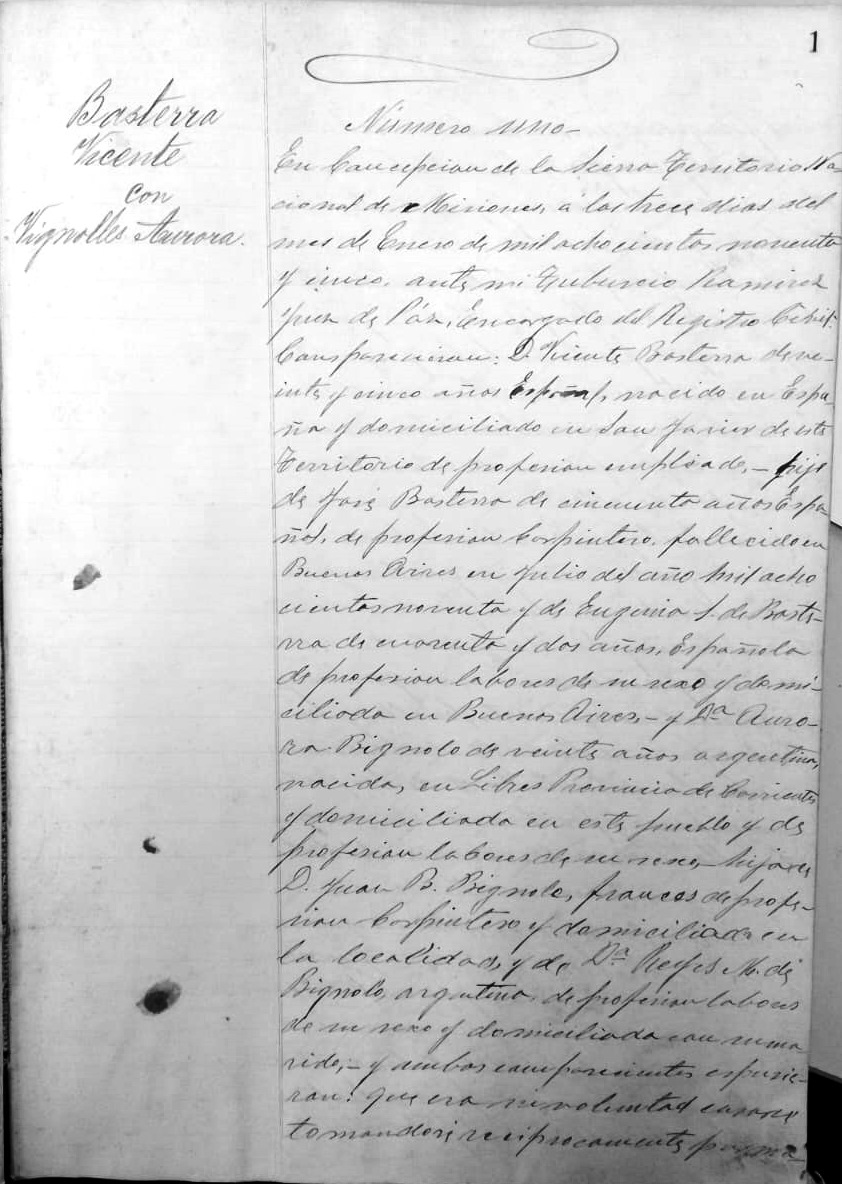 1
Basterra
Vicente
con
Vignolles Aurora.
Número uno-
En Concepcion de la Sierra Territorio Na-
cional de Misiones, á los trece dias del
mes de Enero de mil ochocientos noventa
y cinco. ante mi Tuburcio Ramirez
Juez de Páz, Encargado del Registro Civil:
Comparecieron: D. Vicente Basterra de ve-
inte y cinco años Español, nacido en Espa-
ña y domiciliado en San Javier de este
Territorio de profesion empleado, - hijo
de José Basterra de cincuenta años Espa-
ñol, de profesion Carpintero, fallecido en
Buenos Aires en Julio del año mil ocho
cientos noventa y de Eugenia S. de Baste-
rra de cuarenta y dos años, Española
de profesion labores de su sexo y domi-
ciliada en Buenos Aires, - y Da. Auro-
ra Bignolo de veinte años argentina,
nacida, en Libres Provincia de Corrientes
y domiciliada en este pueblo y de
profesion labores de su sexo, - hija de
D. Juan B. Bignole, frances de profe-
sion Carpintero y domiciliado en
la localidad, y de Da. Reyes M. de
Bignolo, argentina, de profesion labores
de su sexo y domiciliada con su ma
rido, - y ambos comparecientes espusie-
ron: que era su voluntad casarse
tomandose reciprocamente por ma-